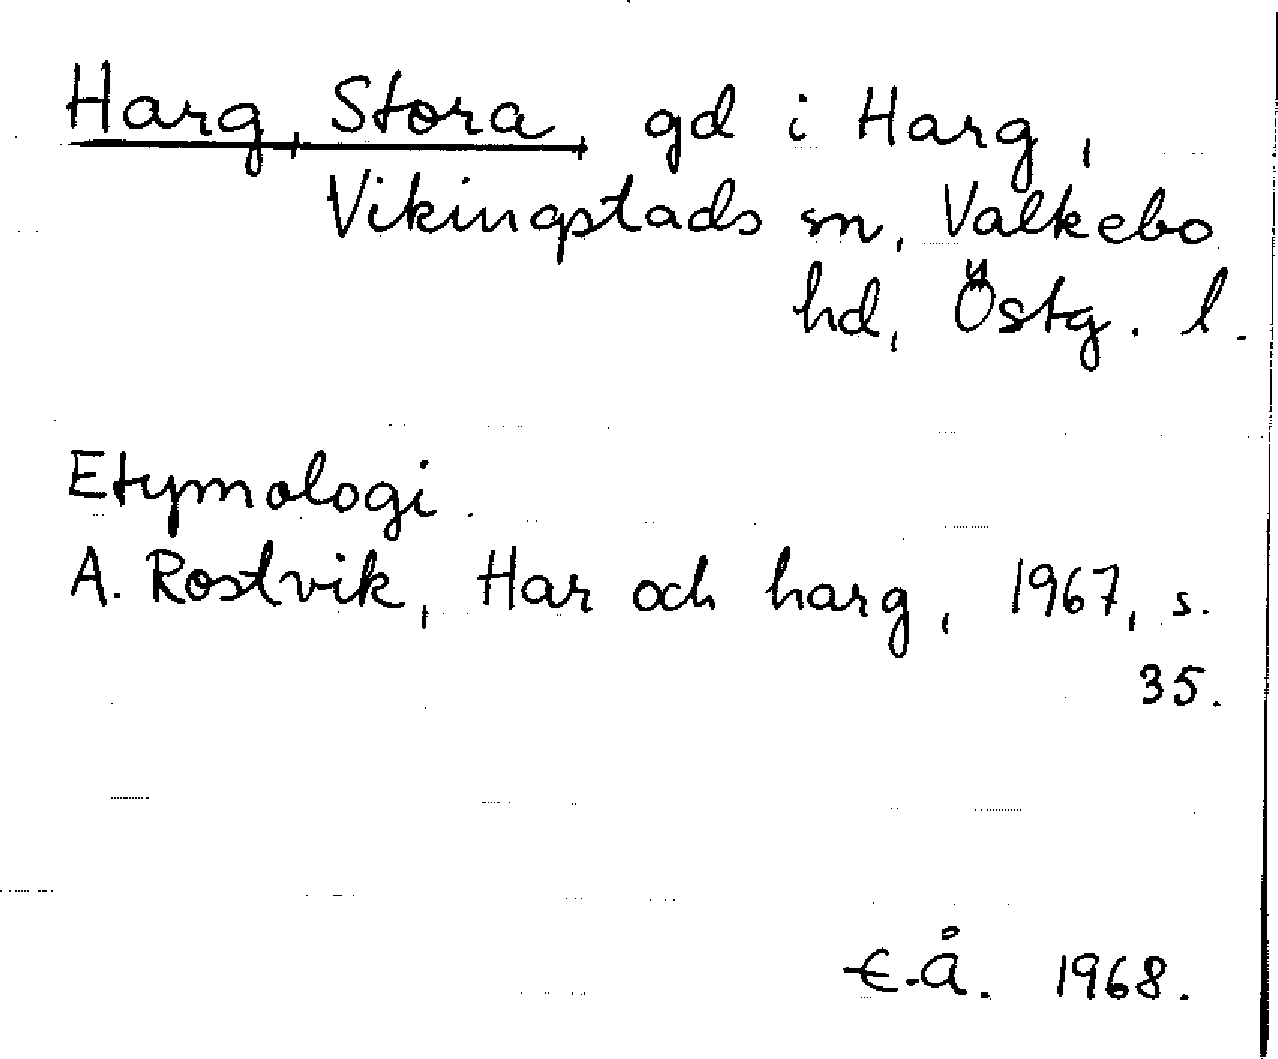 Harg, Stora, gd i Harg,
Vikingstads sn, Valkebo
hd, Östg. l.
Etymologi.
A. Rostvik, Har och harg, 1967, s.
35.
E.Å. 1968.